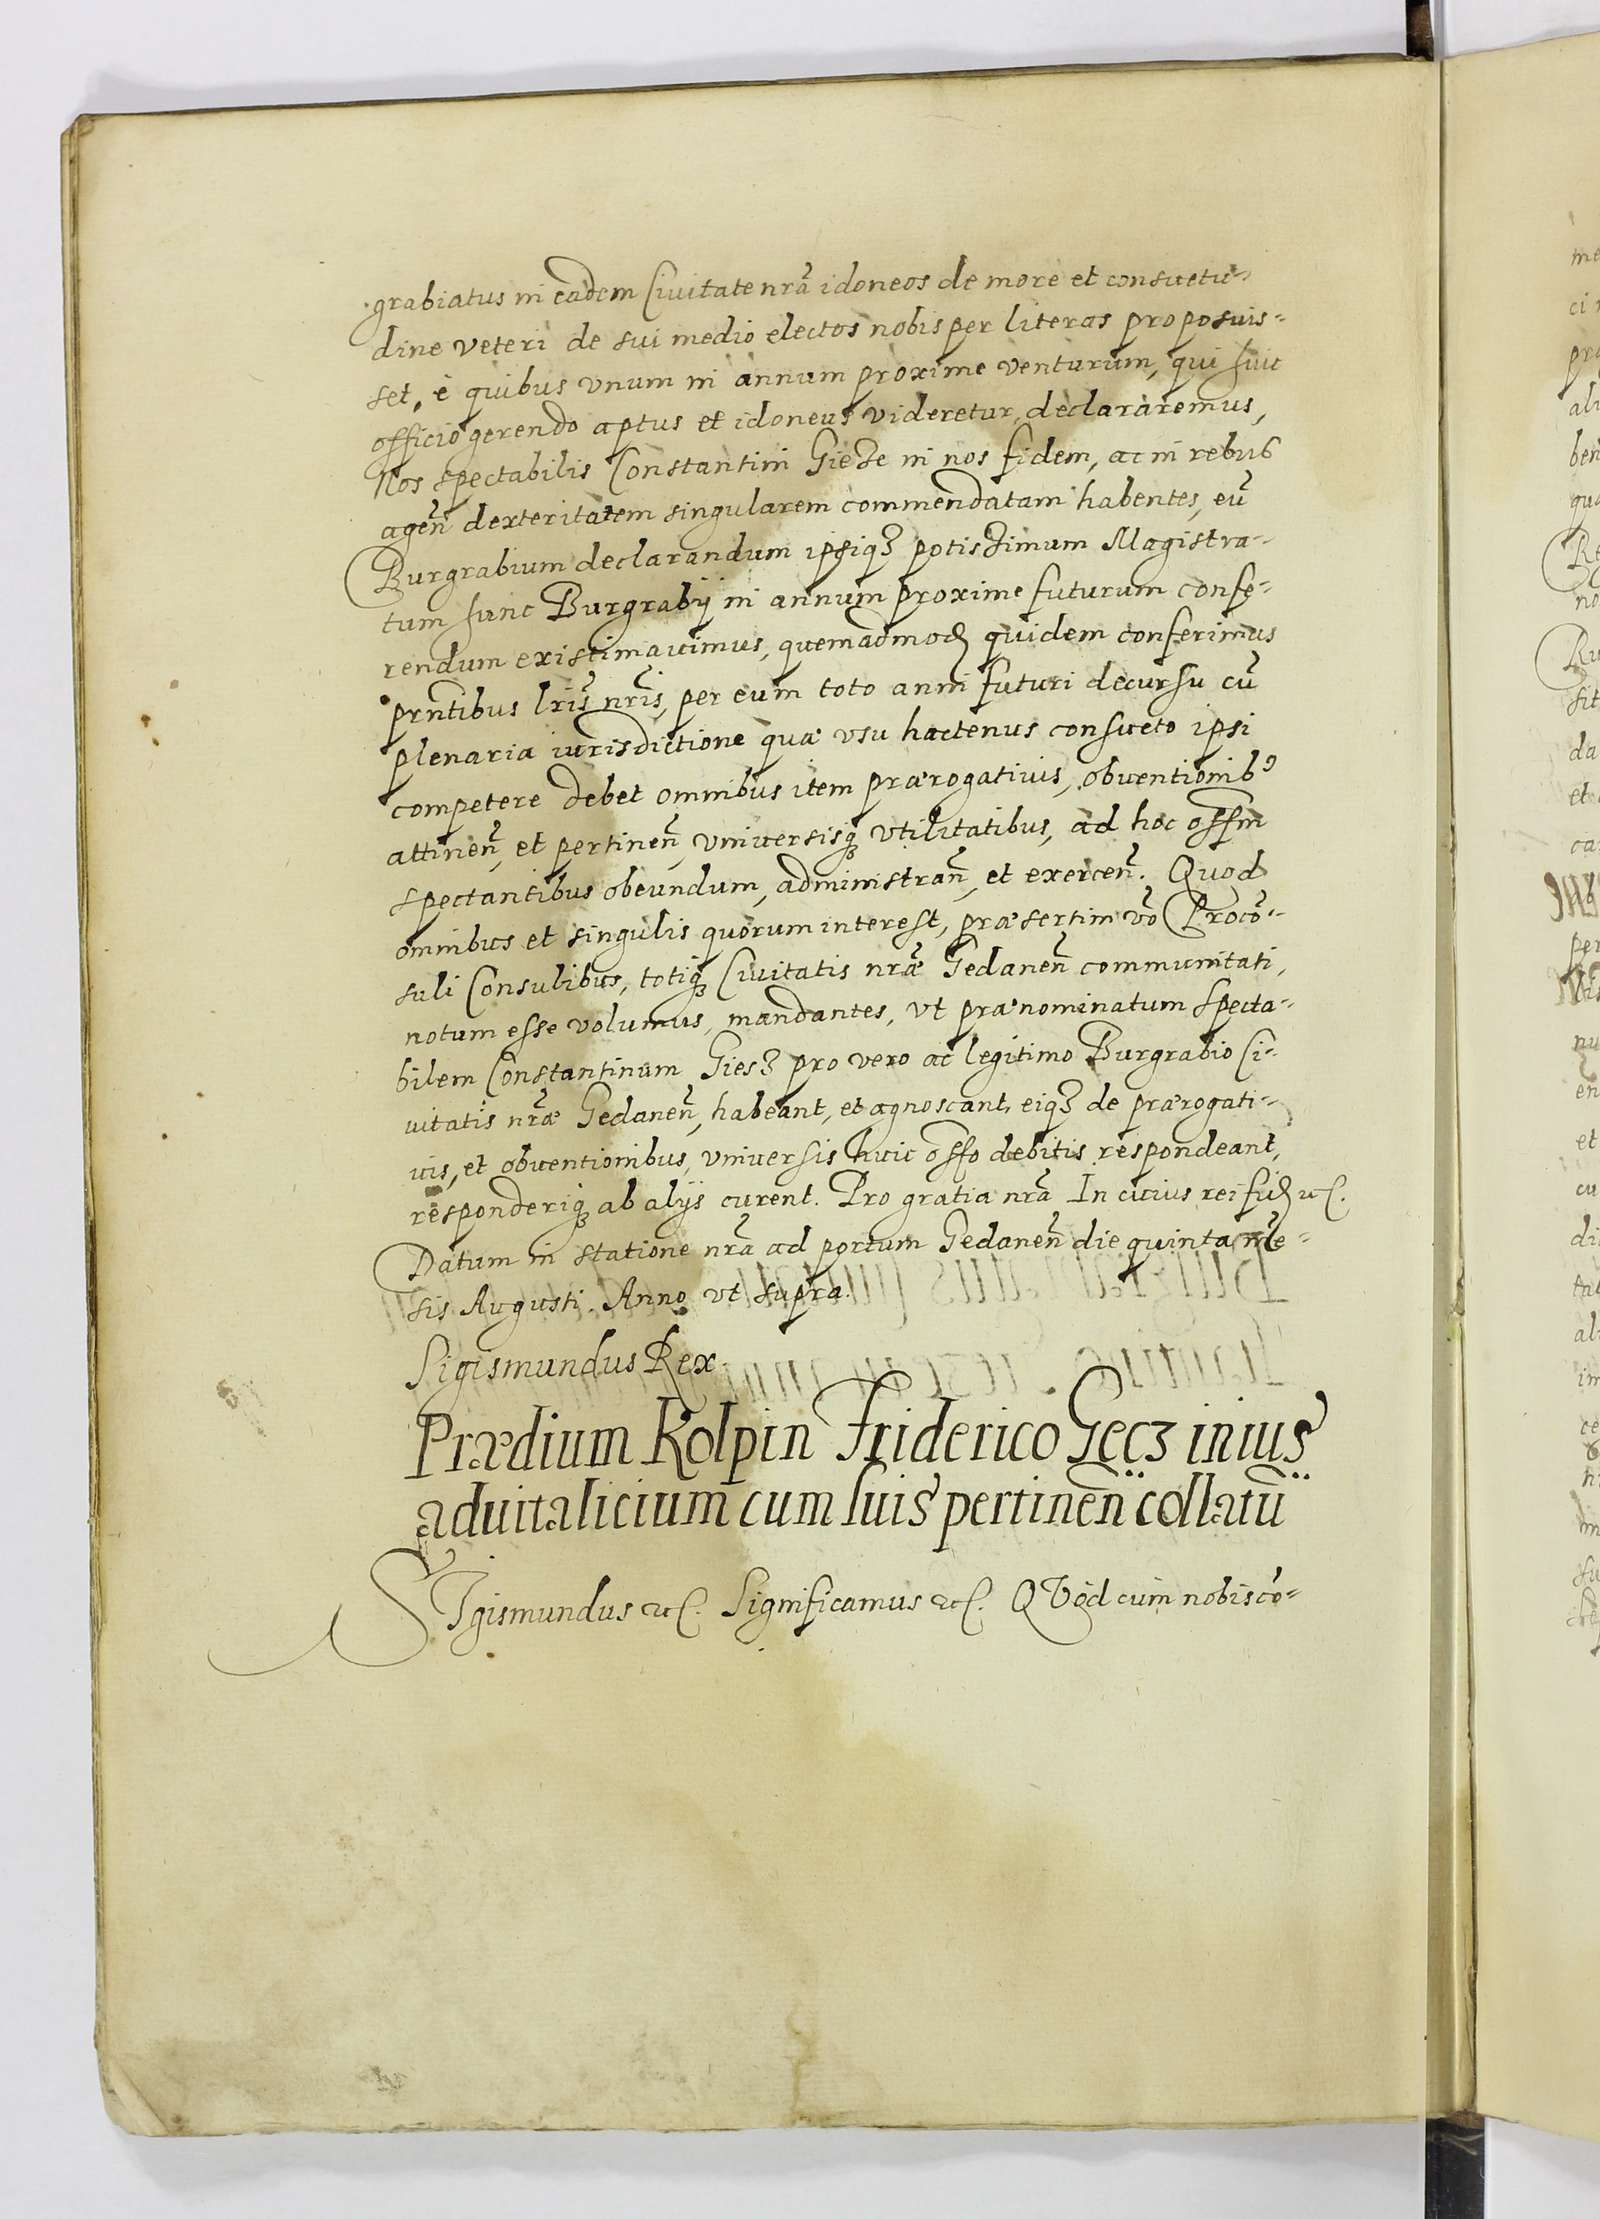 grabiatus in eadem Ciuitate nrã idoneos de more et consuetu-
dine veteri de sui medio electos nobis per literas proposuis-
set, è quibus vnum in annum proxime venturum, qui huic
officio gerendo aptus et idoneus videretur, declararemus,
Nos spectabilis Constantini Giese in nos fidem, ac in rebus
agen̄ dexteritatem singularem commendatam habentes, eũ
Burgrabium declarandum ipsiqꝫ potissimum Magistra-
tum hunc Burgrabij in annum proxime futurum confe-
rendum existimauimus, quemadmođ quidem conferimus
prn̄tibus lr̄is nr̄is, per eum toto anni futuri decursu cũ
plenaria iurisdictione quæ vsu hactenus consueto ipsi
competere debet omnibus item prærogatiuis, obuentionibꝰ
attinen̄, et pertinen̄, vniuersisqꝫ vtilitatibus, ad hoc offm̄
spectantibus obeundum, administran̄, et exercen̄. Quod
omnibus et singulis quorum interest, præsertim vō Procō-
suli Consulibus, totiqꝫ Ciuitatis nrǣ Gedanen̄ communitati,
notum esse volumus, mandantes, vt prænominatum specta-
bilem Constantinum Giesꝫ pro vero ac legitimo Burgrabio Ci-
uitatis nrǣ Gedanen̄, habeant, et agnoscant, eiqꝫ de prærogati-
uis, et obuentionibus, vniuersis huic offo debitis respondeant,
responderiqꝫ ab alijs curent. Pro gratia nrã In cuius rei fiđ etc.
Datum in statione nrã ad portum Gedanen̄ die quinta mē-
sis Augusti. Anno vt supra.
Sigismundus Rex.
Prædium Kolpin Friderico Gecz in ius
aduitalicium cum suis pertinen̄ collatū
SIgismundus etc. Significamus etc. QVod cum nobis cō-